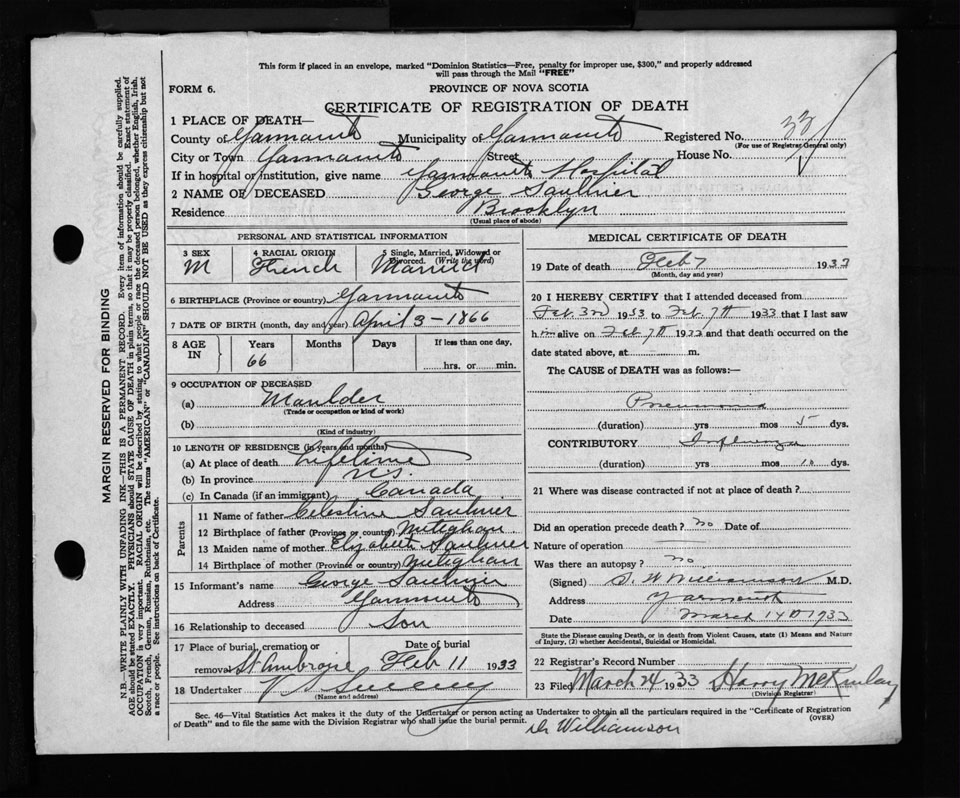 This form if placed in an envelope, marked "Dominion Statistics—Free, penalty for improper use, $300," and properly addressed
will pass through the Mail "FREE"
FORM 6. PROVINCE OF NOVA SCOTIA
CERTIFICATE OF REGISTRATION OF DEATH
1 PLACE OF DEATH—
County of Yarmouth Municipality of Yarmouth Registered No. 33
(For use of Registrar General only)
City or Town Yarmouth Street House No.
If in hospital or institution, give name Yarmouth Hospital
2 NAME OF DECEASED George Saulnier
Residence Brooklyn
(Usual place of abode)
PERSONAL AND STATISTICAL INFORMATION
3 SEX 4 RACIAL ORIGIN 5 Single, Married, Widowed or Divorced. (Write the word)
M French Married
6 BIRTHPLACE (Province or country) Yarmouth
7 DATE OF BIRTH (month, day and year) April 3-1866
8 AGE IN Years Months Days If less than one day,
66 hrs. or min.
9 OCCUPATION OF DECEASED
(a) Moulder
(Trade or occupation or kind of work)
(b)
(Kind of industry)
10 LENGTH OF RESIDENCE (in years and months)
(a) At place of death Lifetime
(b) In province N.S.
(c) In Canada (if an immigrant) Canada
Parents
11 Name of father Celestine Saulnier
12 Birthplace of father (Province or country) Meteghan
13 Maiden name of mother Elizabeth Saulnier
14 Birthplace of mother (Province or country) Meteghan
15 Informant's name George Saulnier
Address Yarmouth
16 Relationship to deceased Son
17 Place of burial, cremation or Date of burial
removal St Ambroise Feb 11 1933
18 Undertaker V S Sweeny
(Name and address)
MEDICAL CERTIFICATE OF DEATH
19 Date of death Feb 7 1933
(Month, day and year)
20 I HEREBY CERTIFY that I attended deceased from
Feb. 3rd 1933 to Feb. 7th 1933 that I last saw
him alive on Feb 7th 1933 and that death occurred on the
date stated above, at m.
The CAUSE of DEATH was as follows:—
Pneumonia
(duration) yrs mos 5 dys.
CONTRIBUTORY Influenza
(duration) yrs mos 10 dys.
21 Where was disease contracted if not at place of death?
Did an operation precede death? no Date of
Nature of operation —
Was there an autopsy? no
(Signed) S. W. Williamson M.D.
Address Yarmouth
Date March 14th 1933
State the Disease causing Death, or in death from Violent Causes, state (1) Means and Nature
of Injury, (2) whether Accidental, Suicidal or Homicidal.
22 Registrar's Record Number
23 Filed March 24 1933 Harry McKinlay
(Division Registrar)
Sec. 46—Vital Statistics Act makes it the duty of the Undertaker or person acting as Undertaker to obtain all the particulars required in the "Certificate of Registration
of Death" and to file the same with the Division Registrar who shall issue the burial permit. (OVER)
Dr Williamson
MARGIN RESERVED FOR BINDING
N.B.—WRITE PLAINLY WITH UNFADING INK—THIS IS A PERMANENT RECORD. Every item of information should be carefully supplied.
AGE should be stated EXACTLY. PHYSICIANS should STATE CAUSE OF DEATH in plain terms, so that it may be properly classified. Exact statement of
OCCUPATION is very important. RACIAL ORIGIN will be described by stating to what people or race the deceased person belonged, whether English, Irish,
Scotch, French, German, Russian, Ruthenian, etc. The terms "AMERICAN" or "CANADIAN" SHOULD NOT BE USED as they express citizenship but not
a race or people. See instructions on back of Certificate.